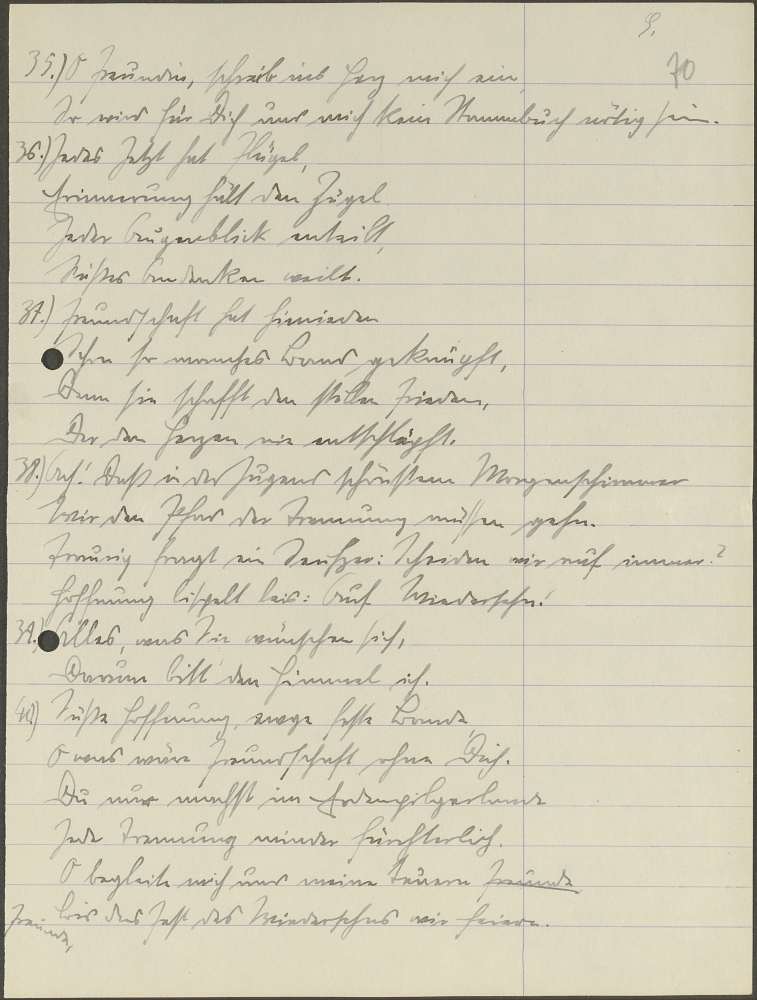 9.
70
35.) O Freundin, schreib ins Herz mich ein
So wird für Dich und mich kein Stammbuch nötig sein.
36.) Jedes Jetzt hat Flügel,
Erinnerung hält den Zügel
Jeder Augenblick enteilt,
Süßes Andenken weilt.
37.) Freundschaft hat hienieden
Schon so manches Band geknüpft,
Denn sie schafft den stillen Frieden,
Der den Herzen nie entschlüpft.
38.) Ach! Daß in der Jugend schönstem Morgenschimmer
Wir den Pfad der Trennung müssen gehn.
Traurig fragt ein Seufzer: Scheiden wir auf immer?
Hoffnung lispelt leis: Auf Wiedersehn!
39.) Alles, was Sie wünschen sich,
Darum bitt' den Himmel ich.
40.) Süße Hoffnung, ewge feste Bande,
O was wäre Freundschaft ohne Dich.
Du nur machst im Erdenpilgerlande
Jede Trennung minder fürchterlich.
O begleite mich und meine teuern Freunde
Bis das Fest des Wiedersehns wir feiern.
Freunde,